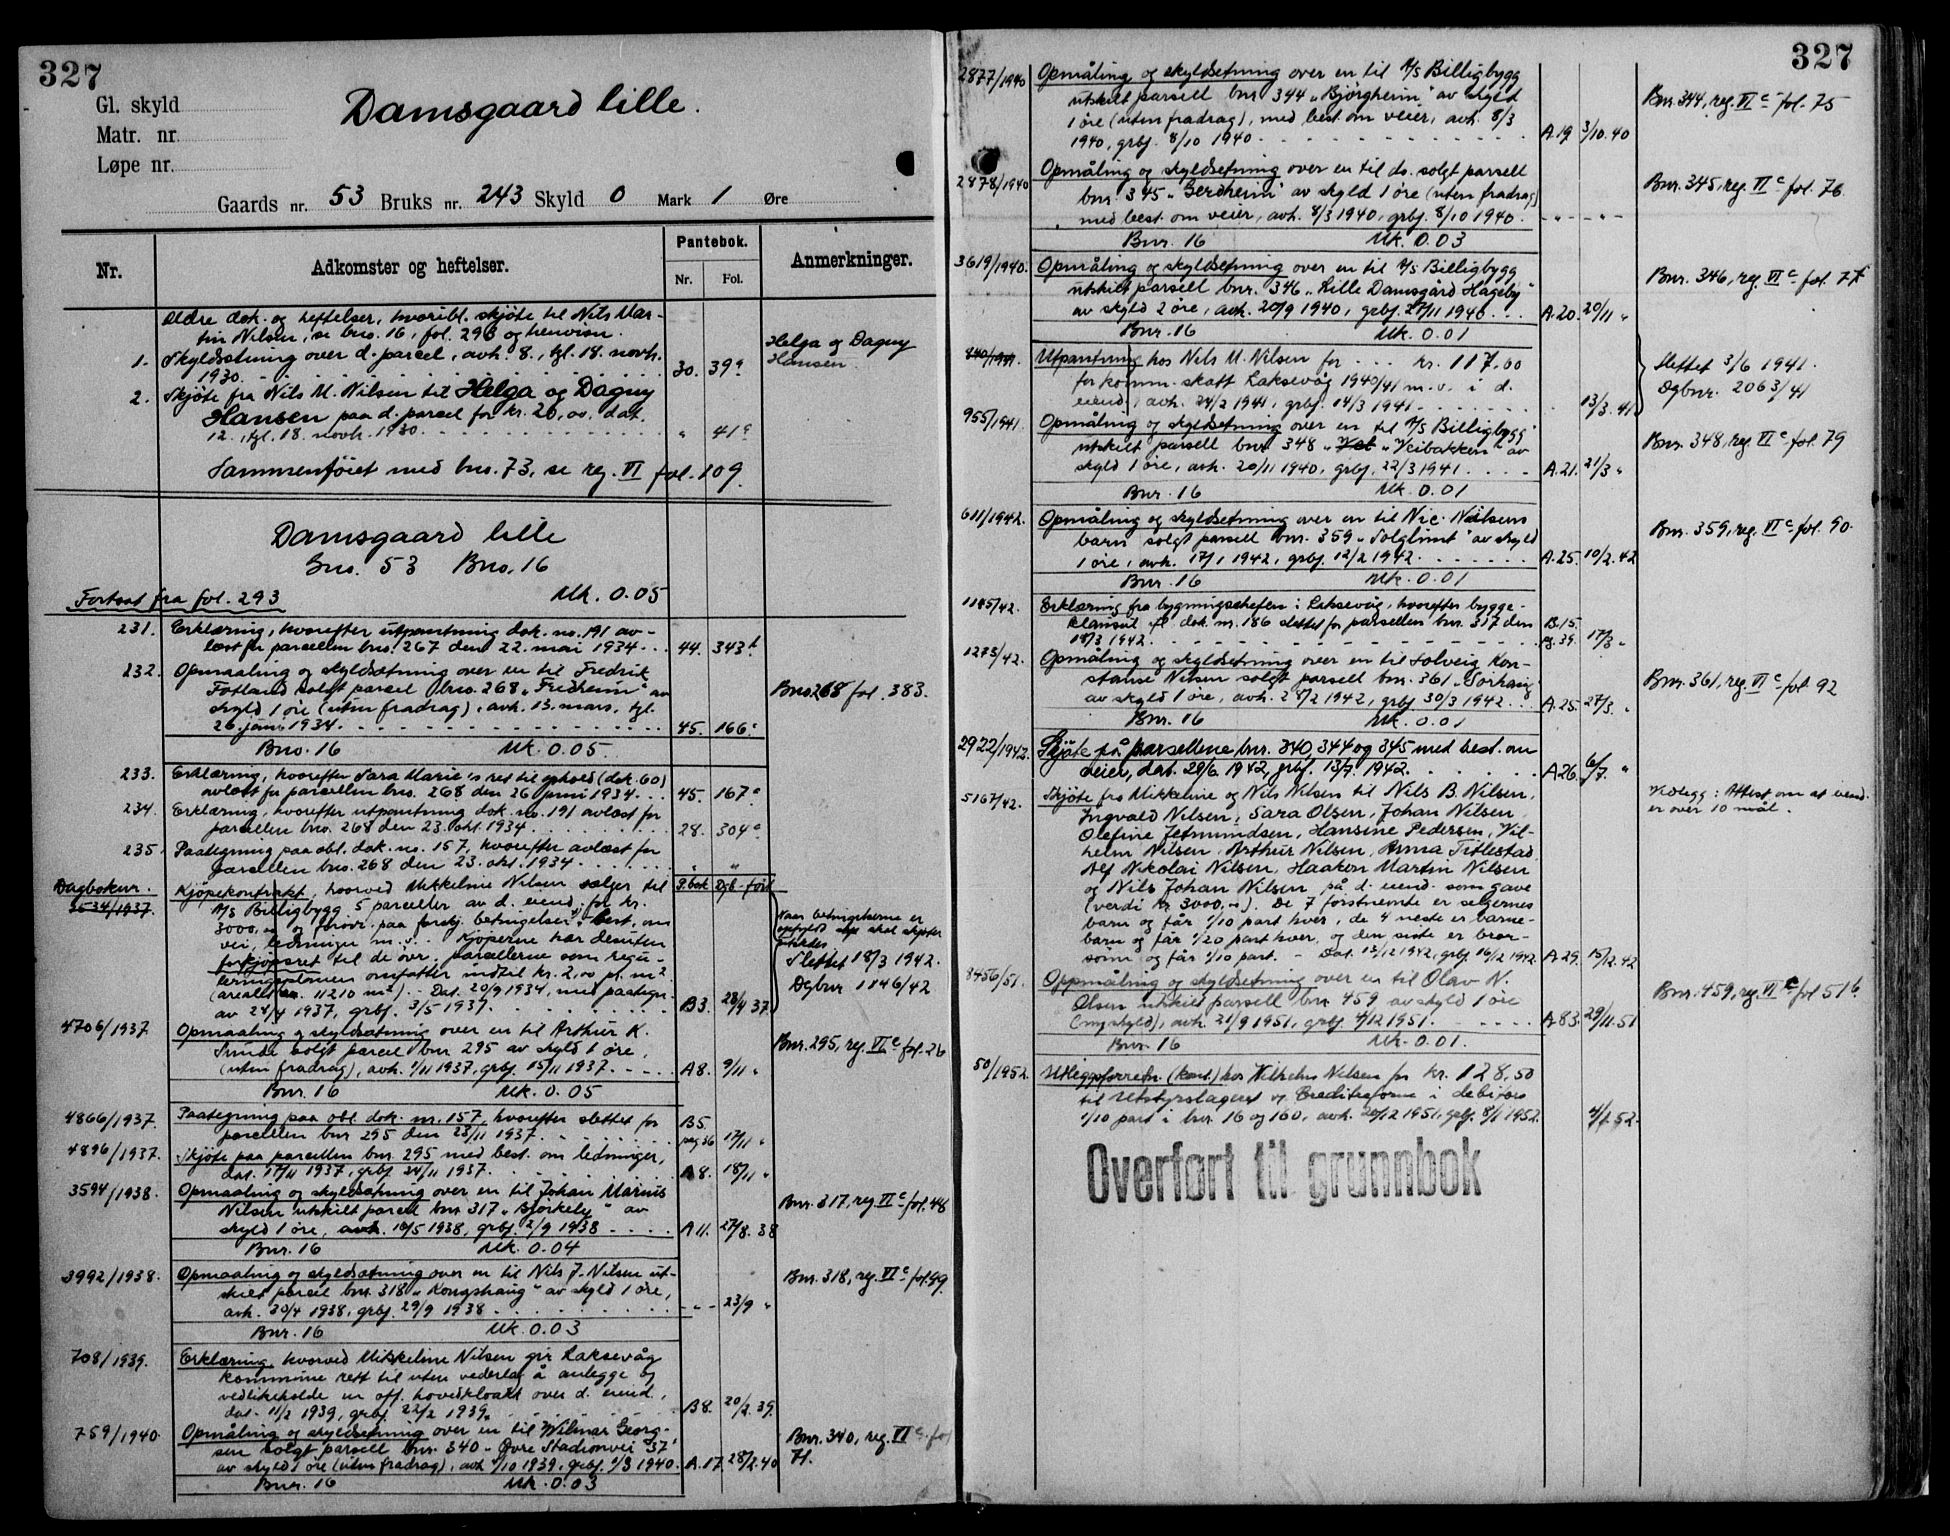 327
Gl. skyld
Matr. nr.
Løpe nr.
Damsgaard lille.
Gaards nr. 53 Bruks nr. 243 Skyld 0 Mark 1 Øre
Nr. Adkomster og heftelser. Pantebok. Anmerkninger.
Nr. Fol.
Ældre dok. og heftelser, hvoribl. skjøte til Nils Mar-
tin Nilsen, se bno. 16, fol. 296 og henvisn.
1. Skyldsætning over d. parcel, avh. 8., tgl. 18. novb.
1930. 30. 39a
Helga og Dagny
Hansen.
2. Skjøte fra Nils M. Nilsen til Helga og Dagny
Hansen paa d. parcel for kr. 20,00. dat.
12., tgl. 18. novb. 1930. " 41a
Sammenføiet med bno. 73, se reg. VI fol. 109.
Damsgaard lille
Gno. 53 Bno. 16
Fortsat fra fol. 293 Mk. 0.05
231. Erklæring, hvorefter utpantning dok. no. 191 av-
læst for parcellen bno. 267 den 22. mai 1934. 44. 343b
232. Opmaaling og skyldsætning over en til Fredrik
Fotland solgt parcel bno. 268 „Fredheim" av
skyld 1 øre (uten fradrag), avh. 13. mars, tgl.
26. juni 1934. 45. 166a
Bno 268 fol. 383.
Bno. 16 Mk. 0.05.
233. Erklæring, hvorefter Sara Marie's ret til ophold (dok. 60)
avlæst for parcellen bno. 268 den 26 juni 1934. 45. 167a
234. Erklæring, hvorefter utpantning dok. no. 191 avlæst for
parcellen bno. 268 den 23. okt. 1934. 28. 304a
235. Paategning paa obl. dok. no. 157, hvorefter avlæst for
parcellen bno. 268 den 23. okt. 1934. " "
Dagboknr. P.bok Dgb.-ført
1534/1937. Kjøpekontrakt, hvorved Mikkeline Nilsen sælger til
A/S Billigbygg 5 parceller av d. eiend. for kr.
3000,00 og forøvr. paa forskj. betingelser. Best. om
vei, ledninger m.v. Kjøperne har desuten
forkjøpsret til de øvr. parcellerne som regu-
leringsplanen omfatter indtil kr. 2,00 pr. m²
(arealet ca. 11210 m²). Dat. 20/9 1934, med paategn.
av 24/4 1937, grbf. 3/5 1937. B3. 28/4 37
Naar betingelserne er
opfyldt skal skjøter
utstedes
Slettet 18/3 1942.
Dgbnr 1146/42
4706/1937. Opmaaling og skyldsætning over en til Arthur K.
Sunde solgt parcel bnr 295 av skyld 1 øre,
(uten fradrag), avh. 1/11 1937, grbf. 15/11 1937. A8. 9/11 "
Bnr. 295, reg. VIc fol. 26
Bnr. 16 Mk. 0.05
4866/1937. Paategning paa obl. dok. nr. 157, hvorefter slettet for
parcellen bnr 295 den 23/11 1937. B5. pag 36 17/11 "
4896/1937. Skjøte paa parcellen bnr. 295 med best. om ledninger,
dat. 17/11 1937, grbf. 24/11 1937. A8. 18/11 "
3594/1938. Opmaaling og skyldsætning over en til Johan Marius
Nilsen utskilt parcel bnr 317 „Bjørkely" av
skyld 1 øre, avh. 10/5 1938, grbf. 2/9 1938 A11. 27/8. 38
Bnr. 317, reg. VIc fol. 48
Bnr. 16 Mk. 0.04
3992/1938. Opmaaling og skyldsætning over en til Nils J. Nilsen ut-
skilt parcel bnr. 318 „Kongshaug" av skyld 1 øre,
avh. 30/4 1938, grbf. 29/9 1938 - - - 23/9 "
Bnr. 318, reg. VIc fol. 49.
Bnr. 16 Mk. 0.03
708/1939. Erklæring, hvorved Mikkeline Nilsen gir Laksevåg
kommune rett til uten vederlag å anlegge og
vedlikeholde en off. hovedkloakk over d. eiend.,
dat. 11/2 1939, grbf. 22/2 1939. B8. 20/2. 39.
759/1940 Opmåling og skyldsetning over en til Wilmar Georg-
sen solgt parsell bnr. 340 „Øvre Stadionvei 37"
av skyld 1 øre (uten fradrag), avh. 1/10 1939, grbf. 1/3 1940. A.17. 28/2.40
Bnr. 340, reg. VIc fol
71.
Bnr. 16 Mk. 0.03
327
2877/1940 Opmåling og skyldsetning over en til A/S Billigbygg
utskilt parsell bnr. 344 „Bjørgheim" av skyld
1 øre (uten fradrag), med best. om veier, avh. 8/3
1940, grbf. 8/10 1940. A.19 3/10.40
Bnr. 344, reg. VIc fol. 75
2878/1940 Opmåling og skyldsetning over en til do. solgt parsell
bnr. 345 „Gerdheim" av skyld 1 øre (uten fradrag)
med best. om veier, avh. 8/3 1940, grbf. 8/10 1940. - " - - " -
Bnr. 345, reg. VIc fol. 76.
Bnr. 16 Mk. 0.03
3619/1940. Opmåling og skyldsetning over en til A/S Billigbygg
utskilt parsell bnr. 346 „Lille Damsgård Hageby"
av skyld 2 øre, avh. 20/9 1940, grbf. 27/11 1940. A.20. 20/11 "
Bnr. 346, reg. VIc fol. 77
Bnr. 16 Mk. 0.01
840/1941. Utpantning hos Nils M. Nilsen for - - - kr. 117,00
for komm. skatt Laksevåg 1940/41 m.v. i d.
eiend., avh. 24/2 1941, grbf. 14/3 1941. 13/3. 41
Slettet 3/6 1941.
Dgbnr. 2063/41
955/1941. Opmåling og skyldsetning over en til A/S Billigbygg
utskilt parsell bnr 348 „Veibakken" av
skyld 1 øre, avh. 20/11 1940, grbf. 22/3 1941. A.21. 21/3 "
Bnr. 348, reg. VIc fol. 79
Bnr. 16 Mk. 0.01
611/1942. Opmåling og skyldsetning over en til Nic. Nilsens
barn solgt parsell bnr. 359 „Solglimt" av skyld
1 øre, avh. 17/1 1942, grbf. 12/2 1942. A.25. 10/2. 42
Bnr. 359, reg. VIc fol. 90.
Bnr. 16 Mk. 0.01
1145/42. Erklæring fra bygningssjefen i Laksevåg, hvorefter bygge-
klausul dok. nr. 186 slettet for parsellen bnr. 317 den
18/3 1942. B.15. pg. 39. 17/3 "
1273/42. Opmåling og skyldsetning over en til Solveig Kon-
stanse Nilsen solgt parsell bnr. 361 „Solhaug"
av skyld 1 øre, avh. 2/2 1942, grbf. 30/3 1942. A.25. 27/3. "
Bnr. 361, reg. VIc fol 92
Bnr. 16 Mk. 0.01
2922/1942. Skjøte på parsellene bnr. 340, 344 og 345 med best. om
veier, dat. 29/6 1942, grbf. 13/7 1942. A.26. 6/7. "
5167/42. Skjøte fra Mikkeline og Nils Nilsen til Nils B. Nilsen,
Ingvald Nilsen, Sara Olsen, Johan Nilsen,
Olefine Jetmundsen, Hansine Pedersen, Vil-
helm Nilsen, Arthur Nilsen, Anna Titlestad,
Alf Nikolai Nilsen, Haakon Martin Nilsen
og Nils Johan Nilsen på d. eiend. som gave
(verdi kr 3000,00). De 7 førstnevnte er selgernes
barn og får 1/10 part hver, de 4 neste er barne-
barn og får 1/20 part hver, og den siste er bror-
sønn og får 1/10 part. - Dat. 13/12 1942, grbf. 16/12 1942. A.29. 15/12.42
Vedlegg: Attest om at eiend.
er over 10 mål.
8456/51. Oppmåling og skyldsetning over en til Olav N.
Olsen utskilt parsell bnr 459 av skyld 1 øre
(ny skyld), avh. 21/9 1951, grbf. 4/12 1951. A.83. 29/11.51
Bnr. 459, reg. VIc fol 516.
Bnr. 16 Mk. 0.01.
50/1952. Utleggsforretn. (kont.) hos Vilhelm Nilsen for kr. 128,50
til Utstyrslageret v/ Creditreform i debitors
1/10 part i bnr. 16 og 160, avh. 20/12 1951, grbf. 8/1 1952. 4/1.52.
Overført til grunnbok